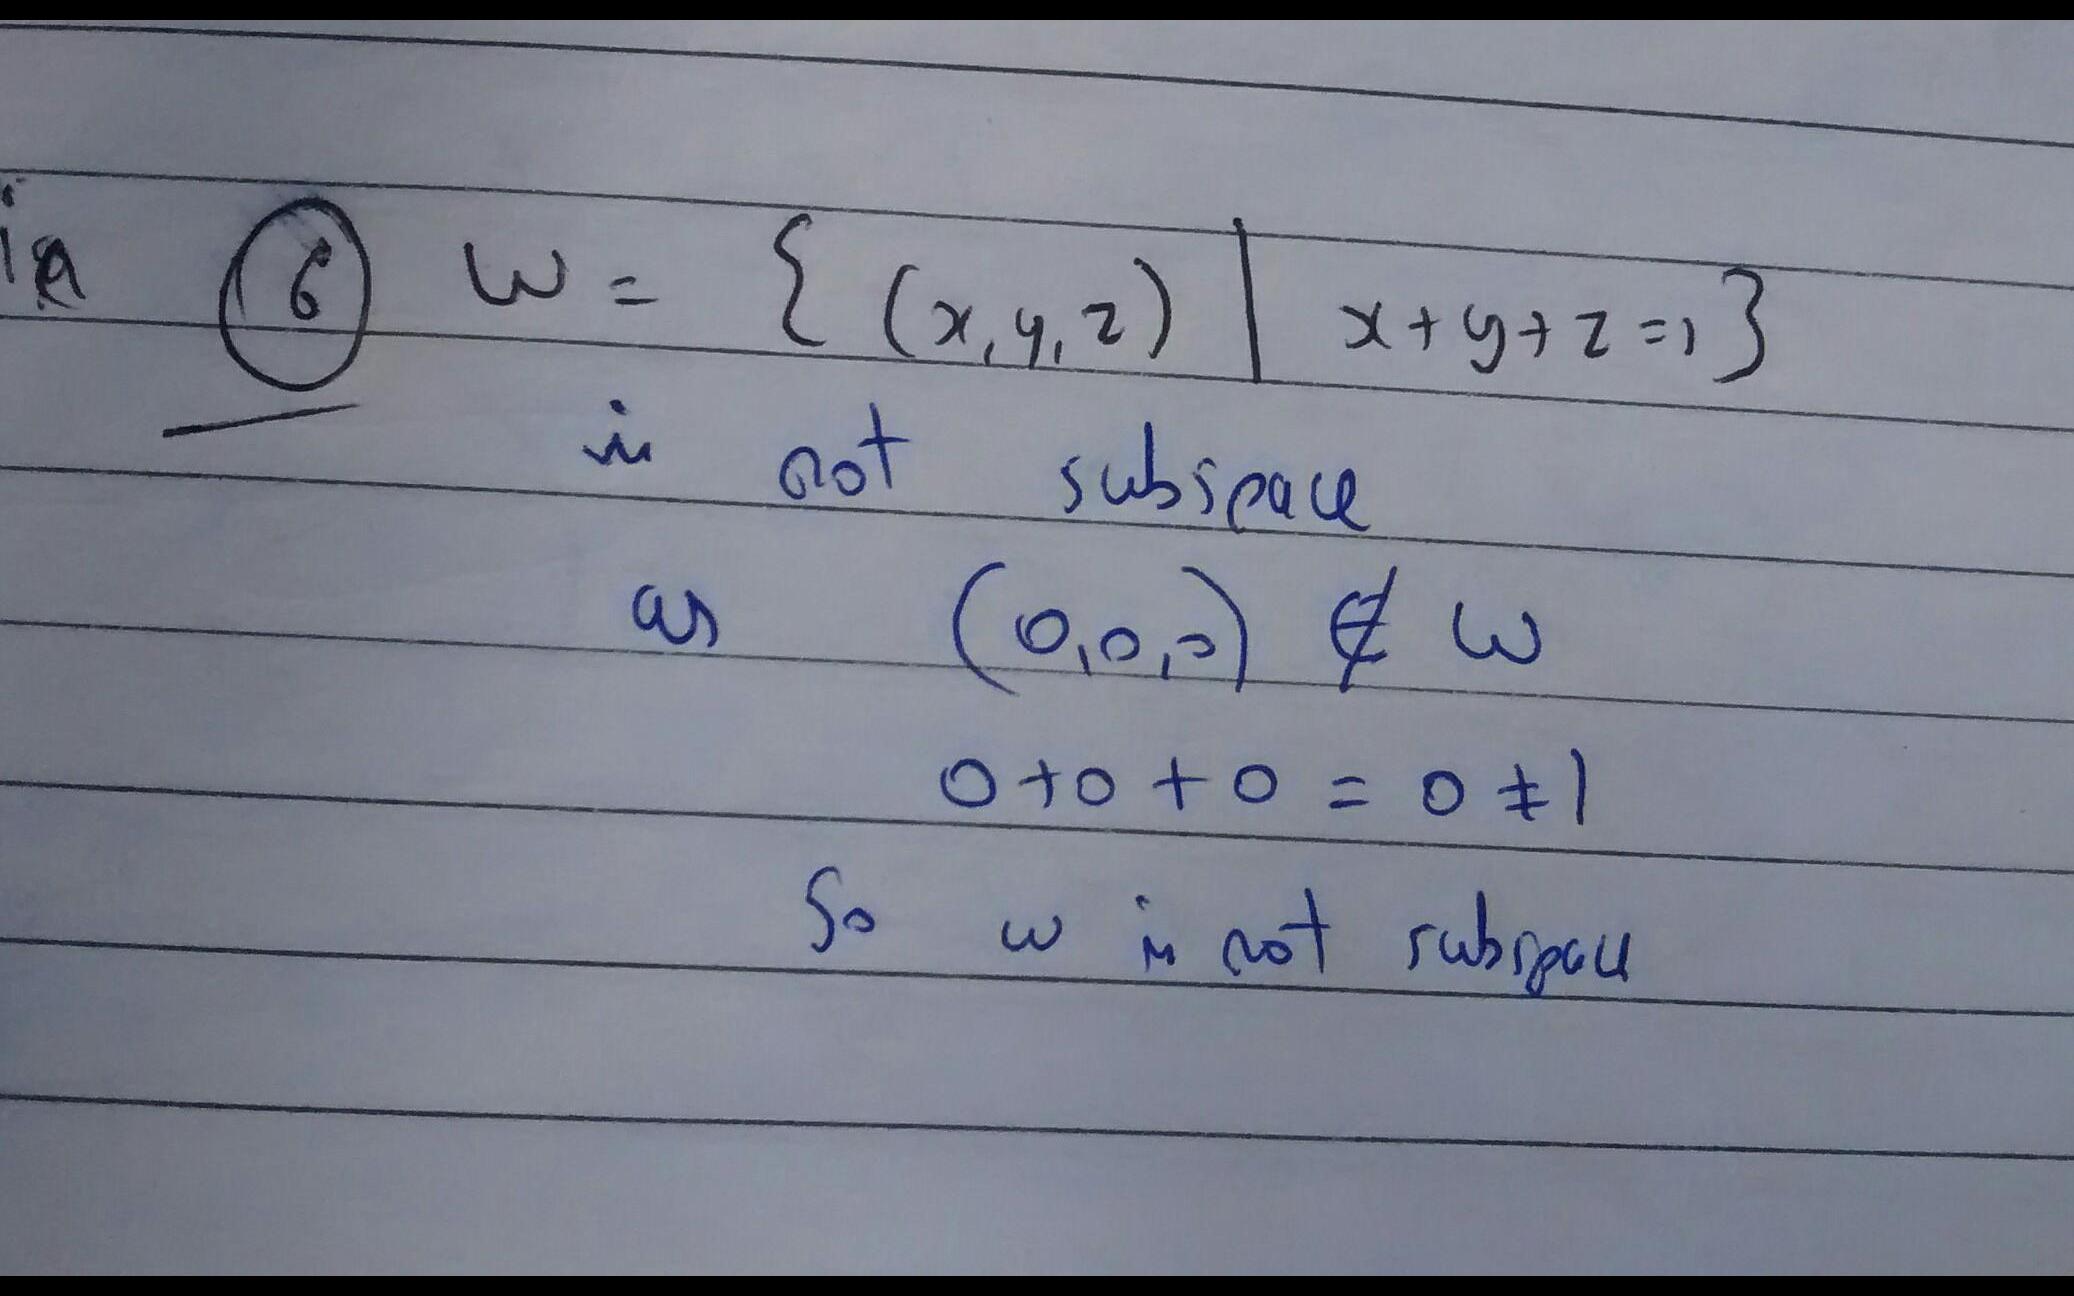 6 W = { (x, y, z) | x + y + z = 1 }
is not subspace
as (0,0,0) ∉ W
0 + 0 + 0 = 0 ≠ 1
So W is not subspace